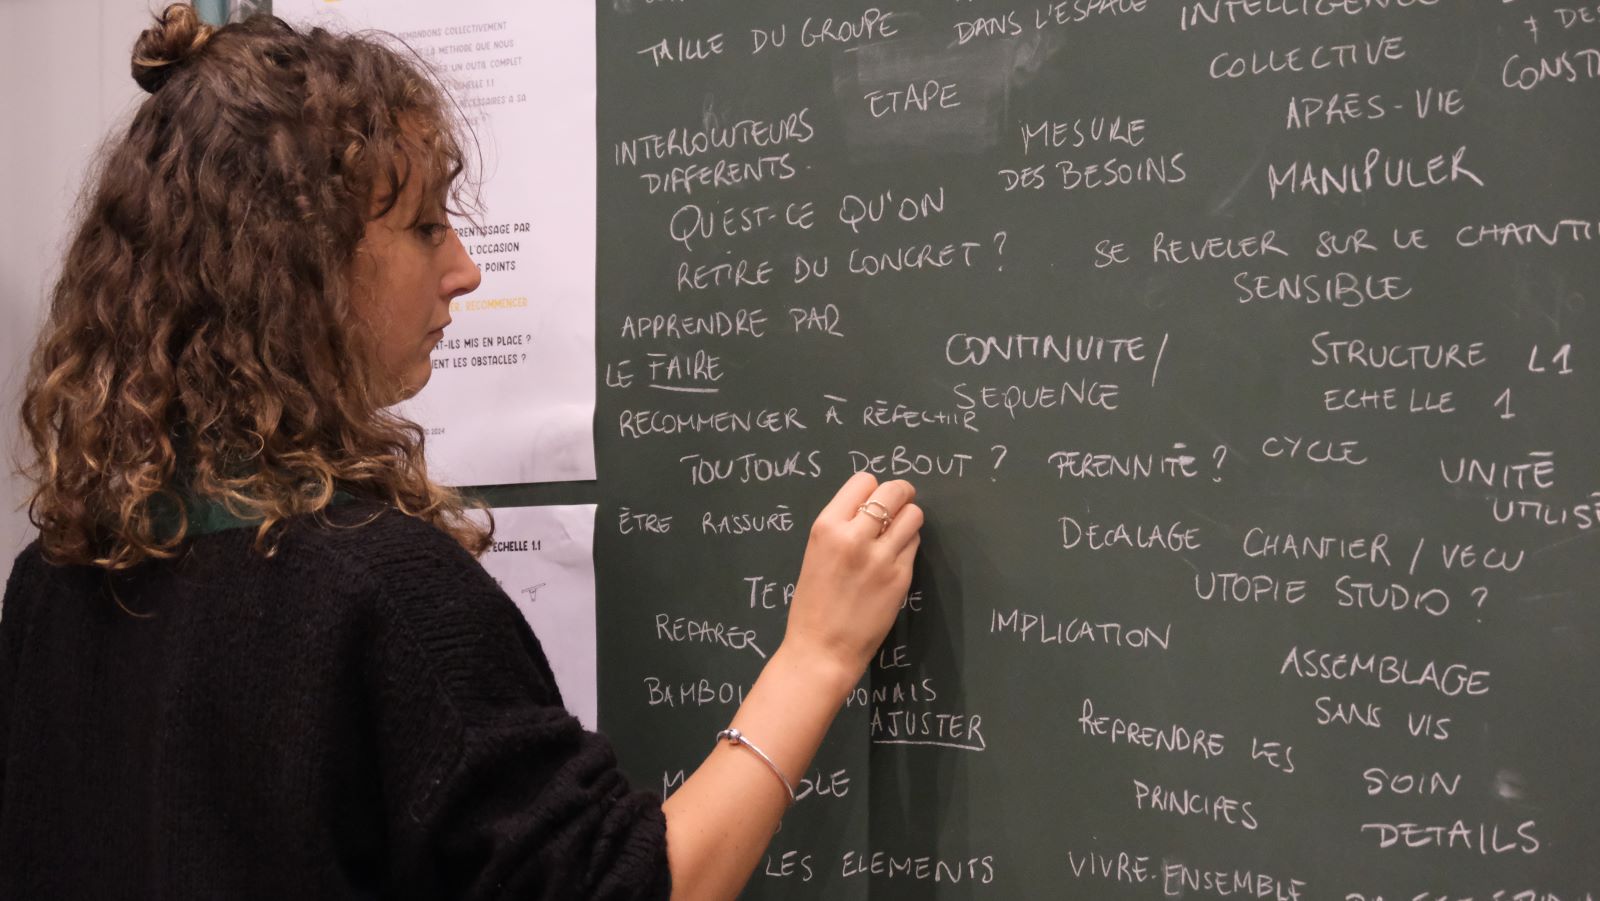 DEMANDONS COLLECTIVEMENT
LA METHODE QUE NOUS
UN OUTIL COMPLET
ECHELLE 1.1
NECESSAIRES A SA
PAR
L'OCCASION
POINTS
RECOMMENCER
MIS EN PLACE ?
LES OBSTACLES ?
ECHELLE 1.1
TAILLE DU GROUPE
DANS L'ESPACE
INTELLIGENCE
COLLECTIVE
ETAPE
INTERLOCUTEURS
DIFFERENTS.
MESURE
DES BESOINS
APRÈS-VIE
MANIPULER
QU'EST-CE QU'ON
RETIRE DU CONCRET ?
SE REVELER SUR LE
SENSIBLE
APPRENDRE PAR
LE FAIRE
CONTINUITE/
SEQUENCE
STRUCTURE L1
ECHELLE 1
RECOMMENCER À
TOUJOURS DEBOUT ?
PERENNITÉ ?
CYCLE
UNITÉ
ÊTRE RASSURÉ
DECALAGE CHANTIER / VECU
UTOPIE STUDIO ?
REPARER
IMPLICATION
ASSEMBLAGE
SANS VIS
AJUSTER
REPRENDRE LES
PRINCIPES
SOIN
DETAILS
LES ELEMENTS
VIVRE-ENSEMBLE